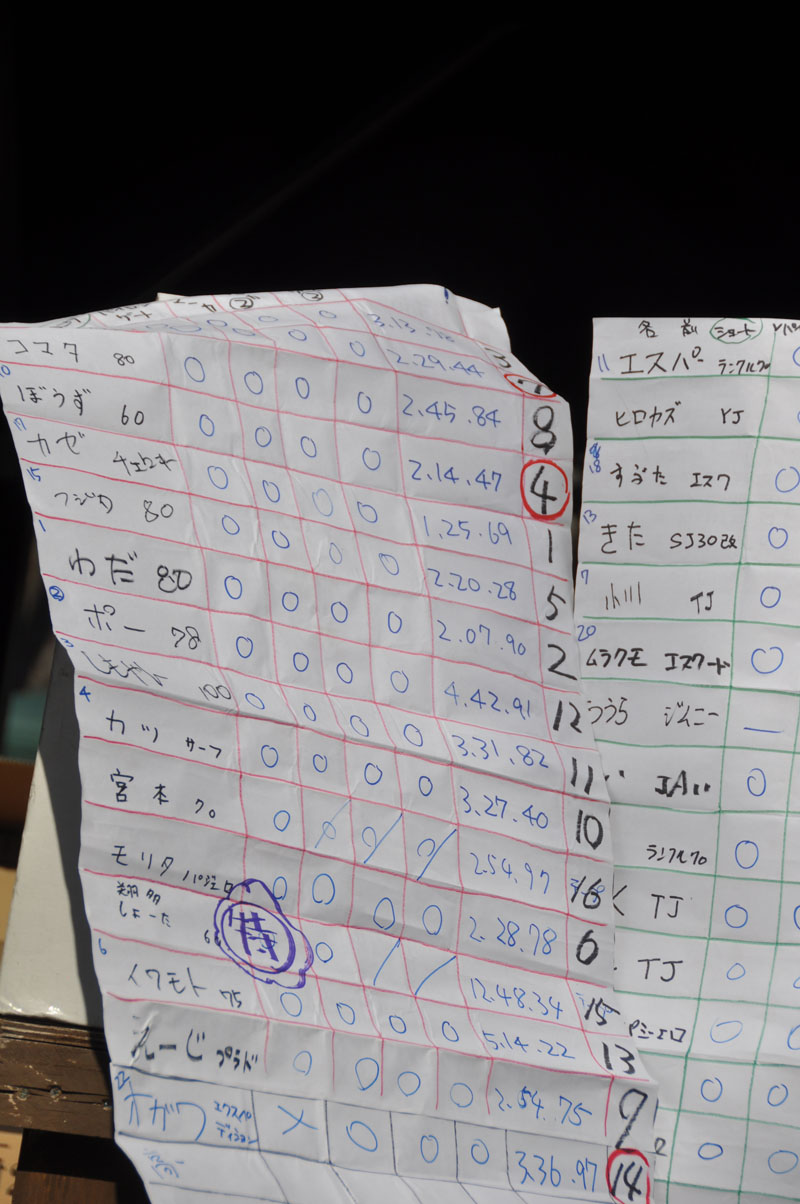 コマタ 80 ○ ○ ○ ○ 2.29.44
10 ぼうず 60 ○ ○ ○ ○ 2.45.84 8
カゼ チェロキ ○ ○ ○ ○ 2.14.47 4
15 フジタ 80 ○ ○ ○ ○ 1.25.69 1
1 わだ 80 ○ ○ ○ ○ 2.20.28 5
② ポー 78 ○ ○ ○ ○ 2.07.90 2
3 100 ○ ○ ○ ○ 4.42.91 12
4 カツ サーフ ○ ○ ○ ○ 3.31.82 11
宮本 70 3.27.40 10
モリタ パジェロ 2.54.97 16
翔多 しょーた 特 2.28.78 6
6 イワモト 75 ○ ○ ○ ○ 12.48.34 15
えーじ プラド ○ ○ ○ ○ 5.14.22 13
オガワ エクスペディション × ○ ○ ○ 2.54.75 9
3.36.97 14
3.13.18
名前 ショート
11 エスパー ランクル70
ヒロカズ YJ
18 すぶた エスク ○
13 きた SJ30改 ○
7 小川 TJ ○
20 ムラクモ エスクード ○
うらら ジムニー —
JA11 ○
ランクル70 ○
く TJ ○
TJ ○
○
○ ○
○ ○